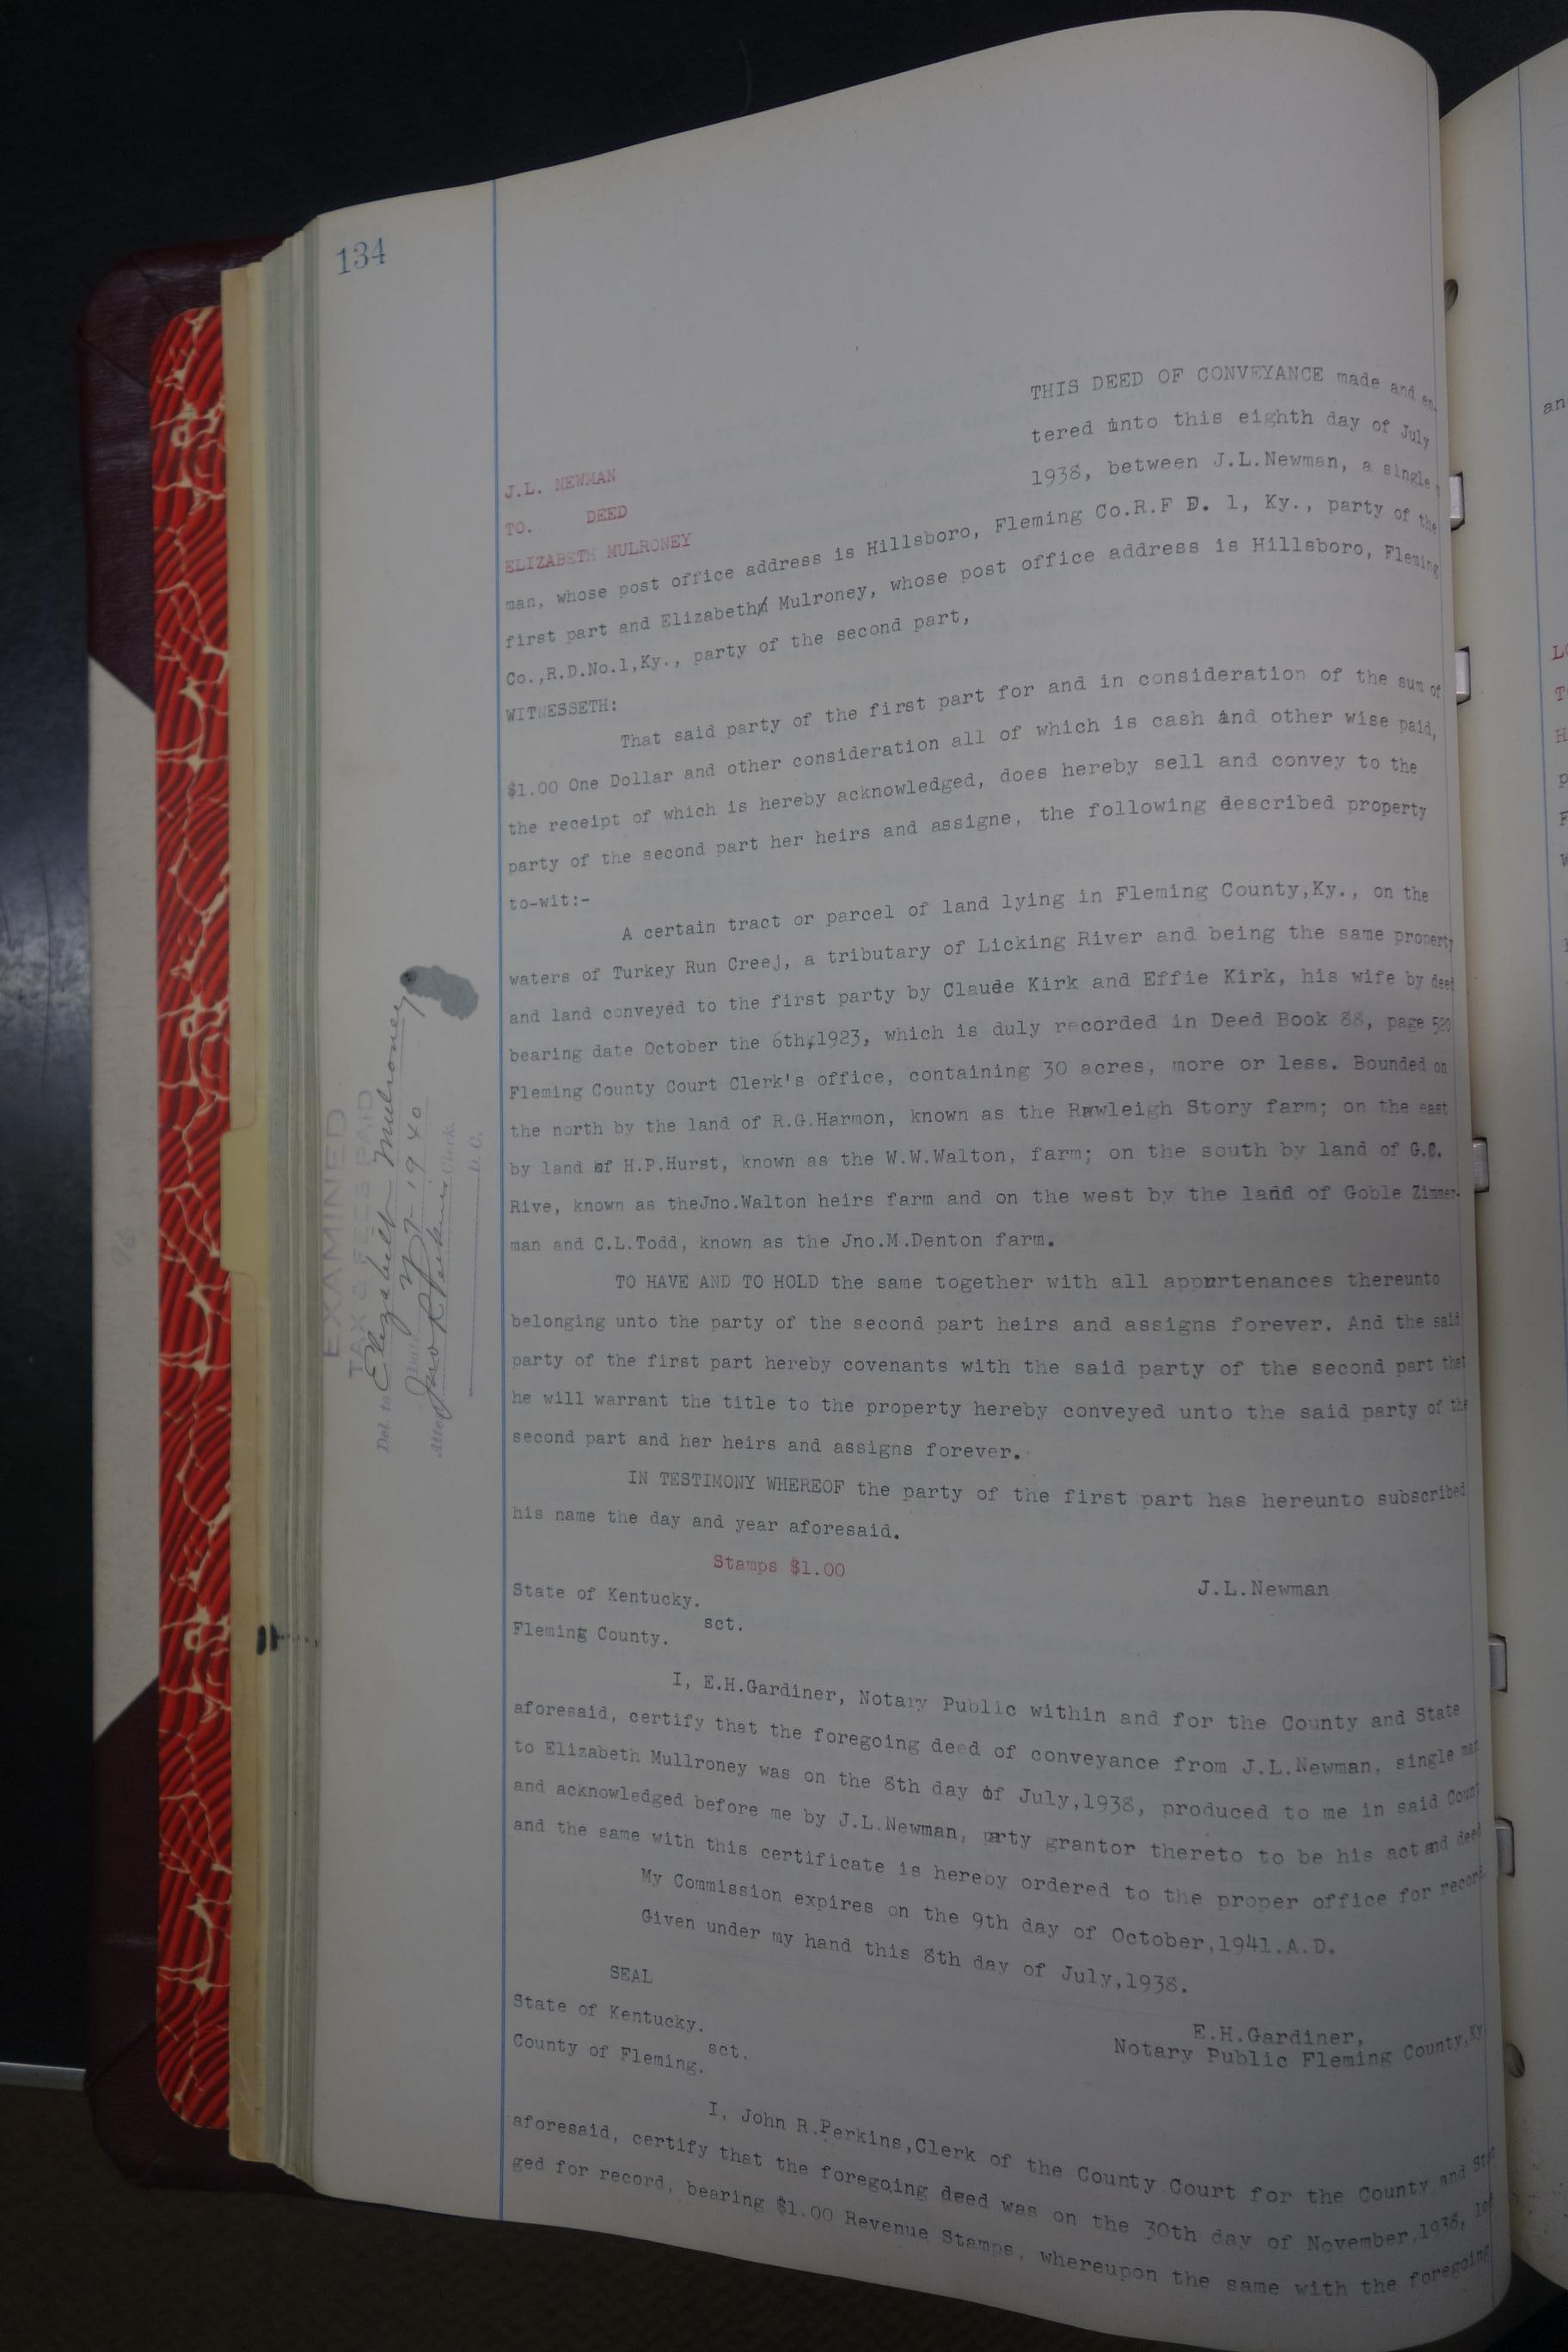 134
THIS DEED OF CONVEYANCE made and en-
tered into this eighth day of July
1938, between J.L.Newman, a single
J.L. NEWMAN
TO. DEED
ELIZABETH MULRONEY
man, whose post office address is Hillsboro, Fleming Co.R.F D. 1, Ky., party of the
first part and Elizabeth Mulroney, whose post office address is Hillsboro, Fleming
Co.,R.D.No.1,Ky., party of the second part,
WITNESSETH:
That said party of the first part for and in consideration of the sum of
$1.00 One Dollar and other consideration all of which is cash and other wise paid,
the receipt of which is hereby acknowledged, does hereby sell and convey to the
party of the second part her heirs and assigne, the following described property
to-wit:-
A certain tract or parcel of land lying in Fleming County,Ky., on the
waters of Turkey Run Creej, a tributary of Licking River and being the same property
and land conveyed to the first party by Claude Kirk and Effie Kirk, his wife by deed
bearing date October the 6th,1923, which is duly recorded in Deed Book 88, page 520
Fleming County Court Clerk's office, containing 30 acres, more or less. Bounded on
the north by the land of R.G.Harmon, known as the Rawleigh Story farm; on the east
by land of H.P.Hurst, known as the W.W.Walton, farm; on the south by land of G.C.
Rive, known as theJno.Walton heirs farm and on the west by the land of Goble Zimmer-
man and C.L.Todd, known as the Jno.M.Denton farm.
TO HAVE AND TO HOLD the same together with all appurtenances thereunto
belonging unto the party of the second part heirs and assigns forever. And the said
party of the first part hereby covenants with the said party of the second part that
he will warrant the title to the property hereby conveyed unto the said party of the
second part and her heirs and assigns forever.
IN TESTIMONY WHEREOF the party of the first part has hereunto subscribed
his name the day and year aforesaid.
Stamps $1.00
J.L.Newman
State of Kentucky.
sct.
Fleming County.
I, E.H.Gardiner, Notary Public within and for the County and State
aforesaid, certify that the foregoing deed of conveyance from J.L.Newman, single man
to Elizabeth Mullroney was on the 8th day of July,1938, produced to me in said Count
and acknowledged before me by J.L.Newman, party grantor thereto to be his act and deed
and the same with this certificate is hereby ordered to the proper office for record.
My Commission expires on the 9th day of October,1941.A.D.
Given under my hand this 8th day of July,1938.
SEAL
E.H.Gardiner,
Notary Public Fleming County,Ky.
State of Kentucky.
sct.
County of Fleming.
I, John R.Perkins,Clerk of the County Court for the County and
aforesaid, certify that the foregoing deed was on the 30th day of November,1938, lod
ged for record, bearing $1.00 Revenue Stamps, whereupon the same with the foregoing
EXAMINED
TAX & FEES PAID
Del. to Elizabeth Mulroney
1940
Attest Jno R Perkins Clerk.
D. C.
an